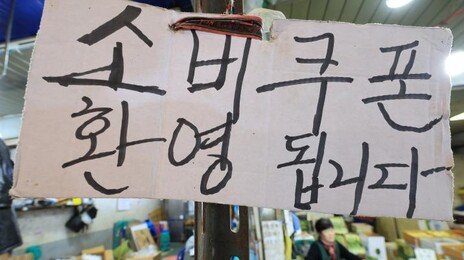 소비쿠폰
환영 됩니다